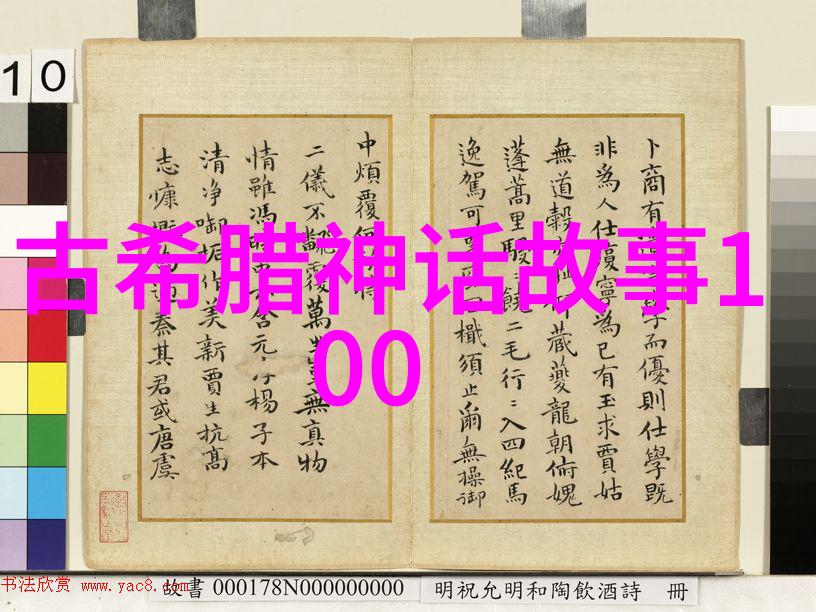 10
古希腊神话故事1
00
卜商有學而優則仕學既
非為人仕寧為己有玉求賈姑
無道穀藏夔龍朝俯媿
蓬蒿里駸〻饒二毛行〻入四紀馬
逸駕可檻須止爾無操御
中煩覆
二儀不覆萬無真物
情雖馮含元楊子本
清净啣垢作美新賈生抗高
志慷秦其君或唐虞
书法欣赏 www.yac8.com
故書 000178N000000000
明祝允明和陶飲酒詩 冊